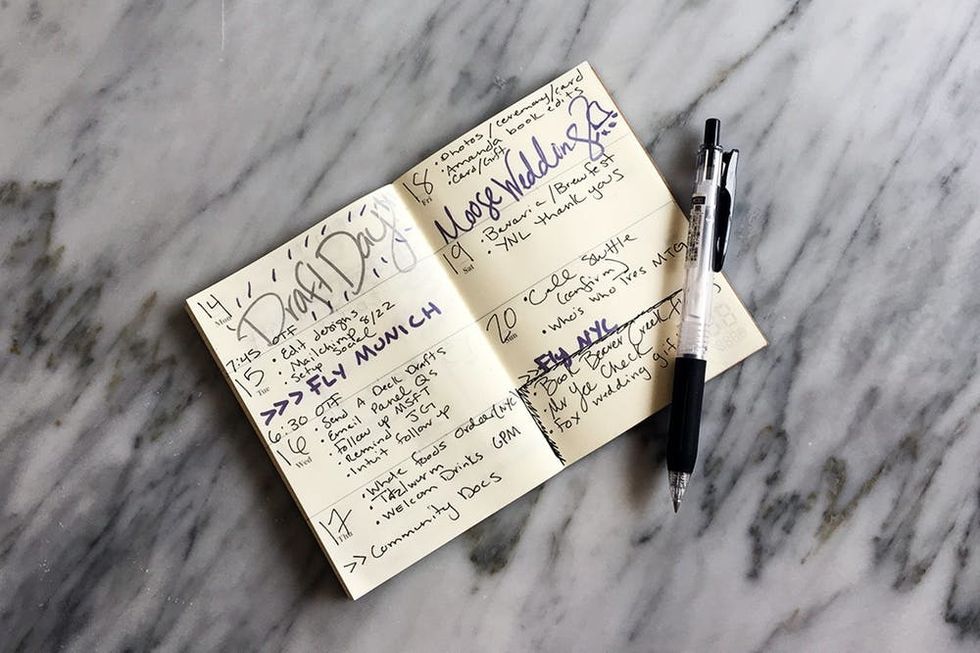 14
Mon
Draft Day
7:45 OTF
• Edit designs
• Mailchimp 8/22
• Setup Social
15
Tue
>>> FLY MUNICH
6:30 OTF
• Send A Deck Drafts
• Email Panel Qs
• Follow up MSFT
• Remind JGI
• Intuit follow up
16
Wed
• Whole foods order/NYC
• Tatzlwurm
• Welcom Drinks 6PM
17
Thu
>> Community Docs
• Photos/ceremony/card
• Amanda book edits
• Card/Gift
18
Fri
Moose Wedding
• Bavaria/Brewfest
• YNL thank yous
19
Sat
• Call Shuttle
(confirm)
• Who's who Tres MTG
20
Sun
>> Fly NYC
• Book Beaver Creek
• Mr Jee Check
• Fox wedding gift